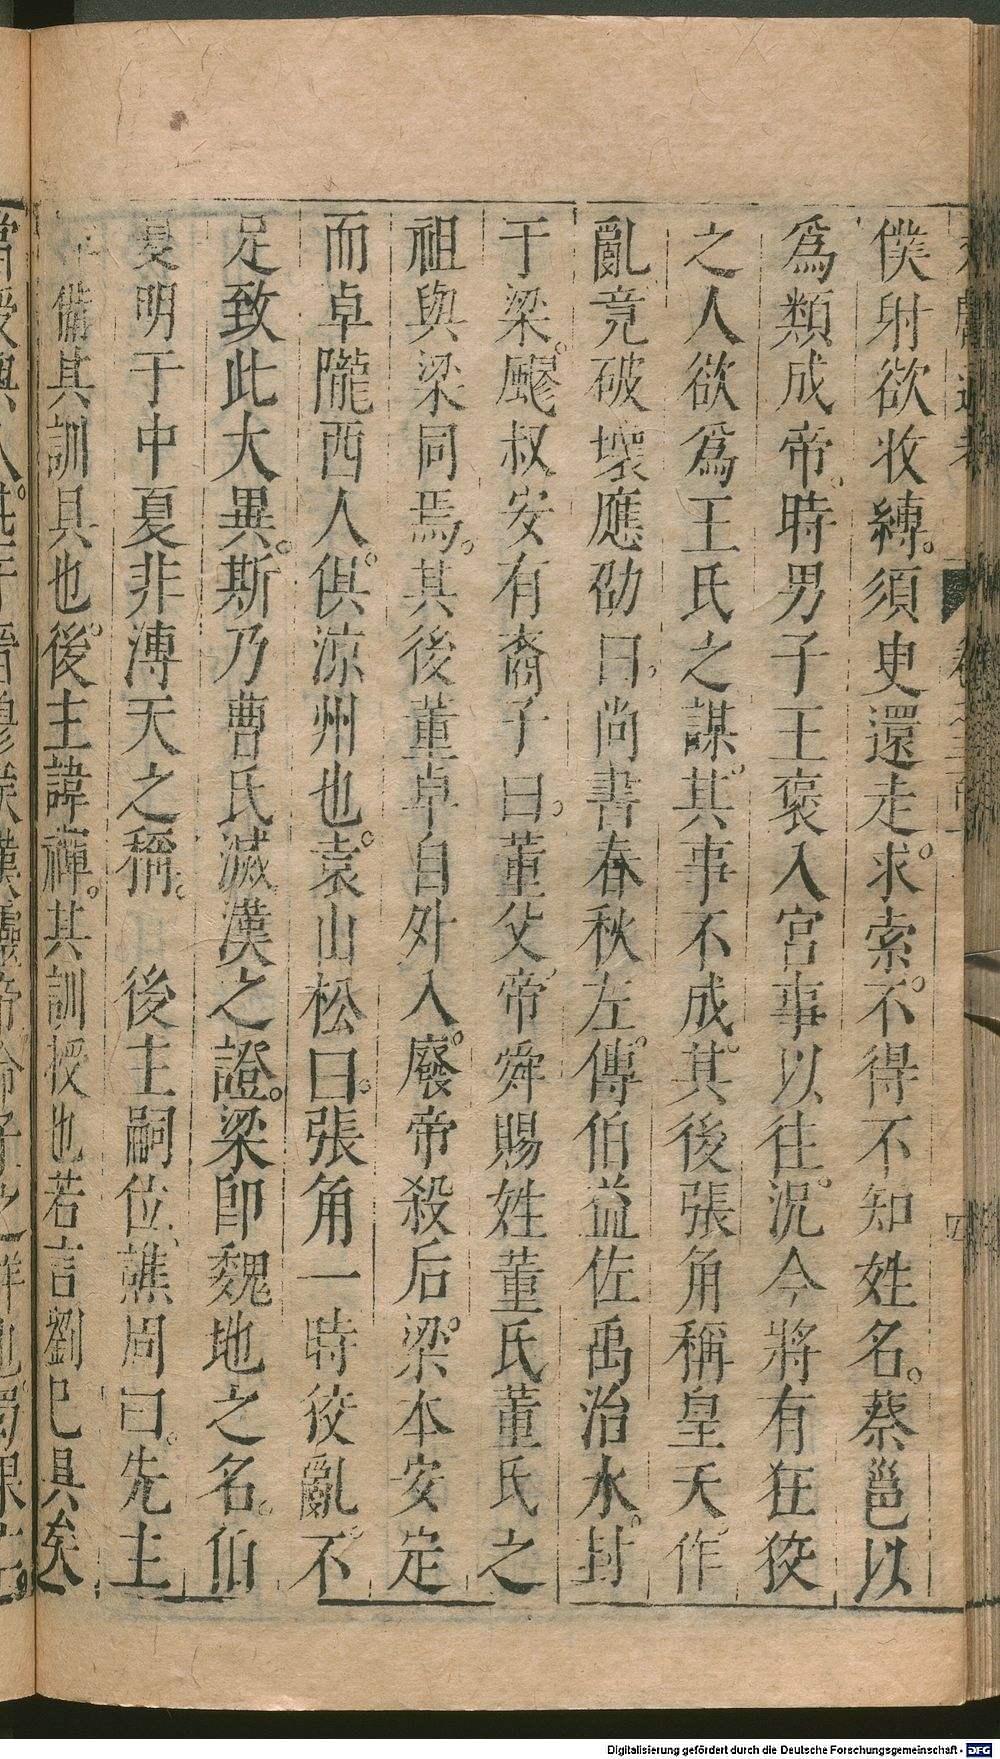 僕射欲收縛。須臾還走。求索。不得不知姓名。蔡邕以
爲類成帝。時男子王褒入宮事以往。況今將有狂狡
之人欲爲王氏之謀。其事不成。其後張角稱皇天。作
亂竟破壞應劭曰。尚書春秋左傳。伯益佐禹治水。封
于梁。飂叔安有裔子曰。董父帝舜賜姓董氏董氏之
祖與梁同焉。其後董卓自外入。廢帝殺后。梁本安定
而卓隴西人。俱涼州也。袁山松曰。張角一時狡亂。不
足致此大異。斯乃曹氏滅漢之證。梁即魏地之名。伯
夏明于中夏非溥天之稱。 後主嗣位、譙周曰。先主
備其訓具也。後主諱禪。其訓授也若言劉已具矣
Digitalisierung gefördert durch die Deutsche Forschungsgemeinschaft - DFG